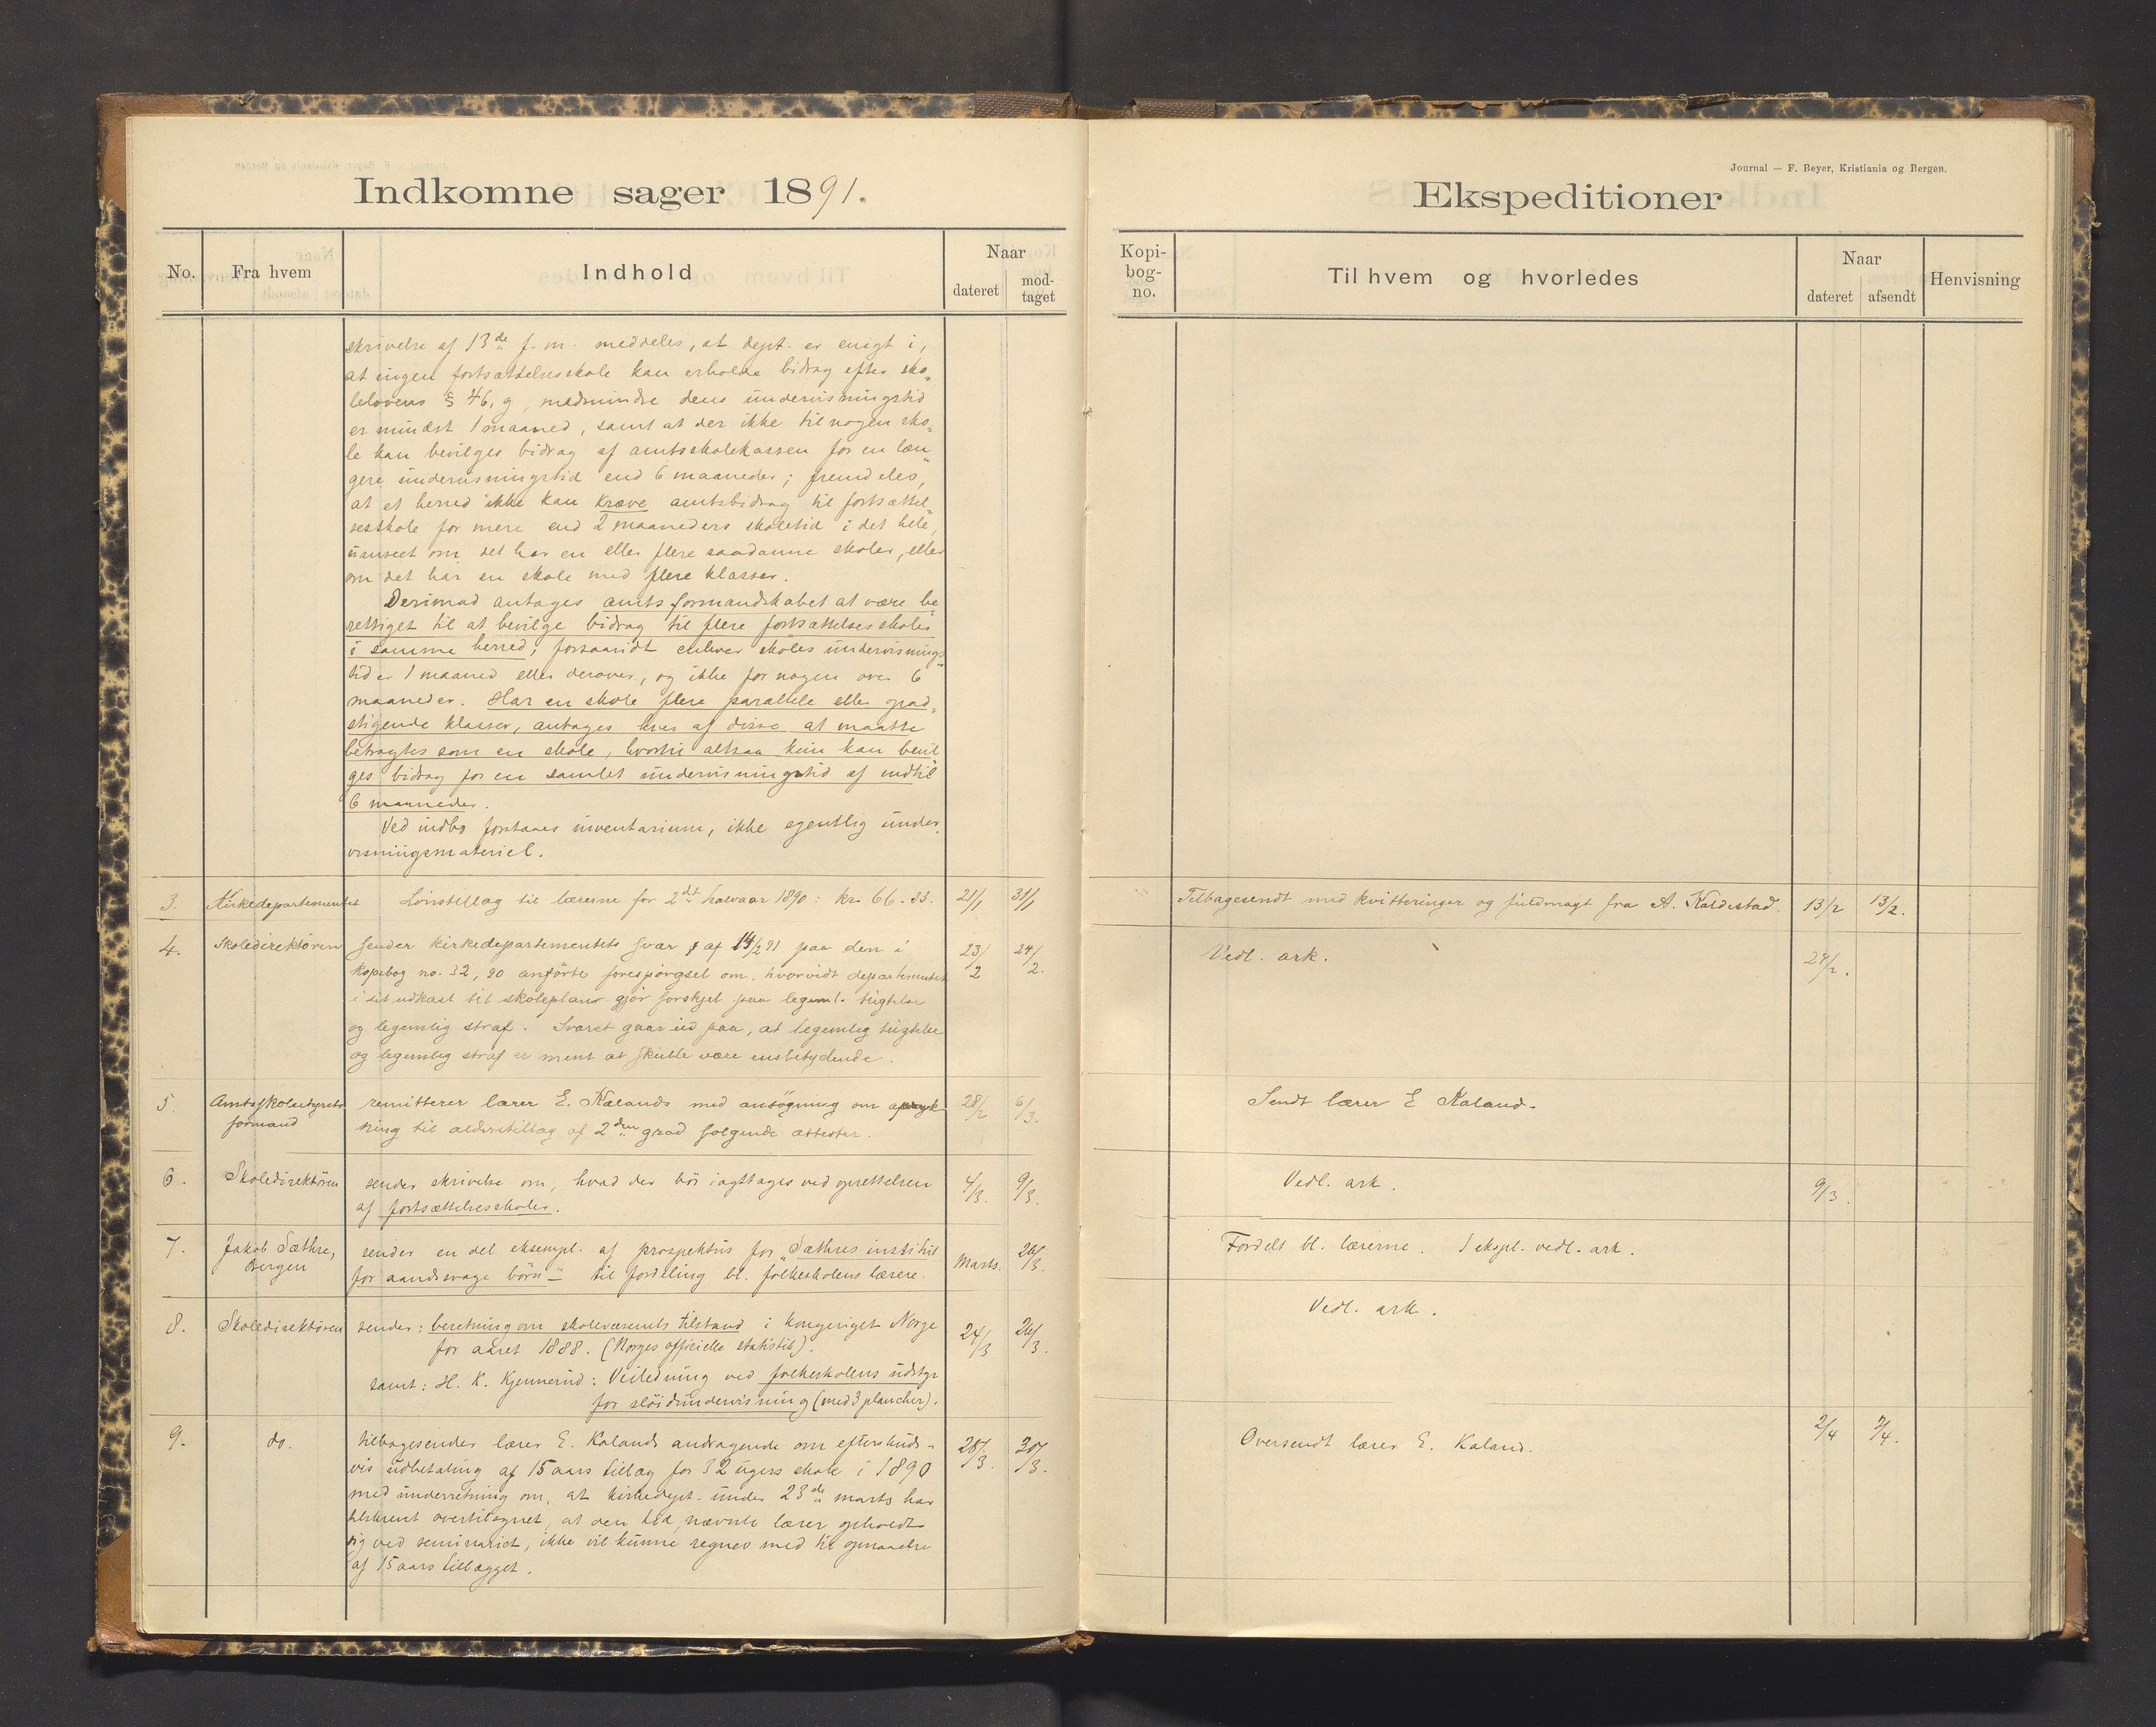 Indkomne sager 1891.
No.
Fra hvem
Indhold
Naar
dateret
mod-
taget
skrivelse af 13de f. m. meddeles, at dept. er enigt i,
at ingen fortsættelsesskole kan erholde bidrag efter sko-
lelovens § 46, g, medmindre dens undervisningstid
er mindst 1 maaned, samt at der ikke til nogen sko-
le kan bevilges bidrag af amtsskolekassen for en læn-
gere undervisningstid end 6 maaneder; fremdeles,
at et herred ikke kan kræve amtsbidrag til fortsættel-
sesskole for mere end 2 maaneders skoletid i det hele,
uanseet om det har en eller flere saadanne skoler, eller
om det har en skole med flere klasser.
Derimod antages amtsformandskabet at være be-
rettiget til at bevilge bidrag til flere fortsættelsesskoler
i samme herred, forsaavidt enhver skoles undervisnings-
tid er 1 maaned eller derover, og ikke for nogen over 6
maaneder. Har en skole flere parallele eller grad-
stigende klasser, antages hver af disse at maatte
betragtes som en skole, hvortil altsaa kun kan bevil
ges bidrag for en samlet undervisningstid af indtil
6 maaneder.
Ved indbo forstaaes inventarium, ikke egentlig under-
visningsmateriel.
3. Kirkedepartementet Lönstillæg til lærerne for 2det halvaar 1890: kr. 66.33. 21/1 31/1
4. Skoledirektören sender kirkedepartementets svar af 14/2 91 paa den i 23/2 24/2.
kopibog no. 32, 90 anförte forespörgsel om, hvorvidt departementet
i sit udkast til skoleplaner gjör forskjel paa legeml. tugtelse
og legemlig straf. Svaret gaar ud paa, at legemlig tugtelse
og legemlig straf er ment at skulle være ensbetydende.
5. Amtsskolestyrets remitterer lærer E. Kalands med ansögning om opryk- 28/2 6/3.
formand ning til alderstillæg af 2den grad følgende attester.
6. Skoledirektören sender skrivelse om, hvad der bör iagttages ved oprettelsen 4/3. 9/3.
af fortsættelsesskoler.
7. Jakob Sæthre, sender en del eksempl. af prospektus for "Sæthres institut Marts. 26/3.
Bergen for aandssvage börn" til fordeling bl. folkeskolens lærere.
8. Skoledirektören sender: beretning om skolevæsenets tilstand i kongeriget Norge 24/3 26/3.
for aaret 1888. (Norges officielle statistik).
samt: H. K. Kjennerud: Veiledning ved folkeskolens udstyr
for slöidundervisning (med 3 plancher).
9. do. tilbagesender lærer E. Kalands andragende om efterskuds-
vis udbetaling af 15 aars tillæg for 32 ugers skole i 1890
med underretning om, at kirkedept. under 23de marts har
tilskrevet at den tid, nævnte lærer opholdt
sig ved seminariet, ikke vil kunne regnes med til opnaaelse
af 15 aars tillægget.
Journal — F. Beyer, Kristiania og Bergen.
Ekspeditioner
Kopi-
bog-
no.
Til hvem og hvorledes
Naar
dateret
afsendt
Henvisning
Tilbagesendt med kvitteringer og fuldmagt fra A. Kaldestad. 13/2 13/2.
Vedl. ark. 24/2.
Sendt lærer E Kaland.
Vedl. ark. 9/3.
Fordelt bl. lærerne. 1 ekspl. vedl. ark.
Vedl. ark.
Oversendt lærer E. Kaland. 2/4 2/4.